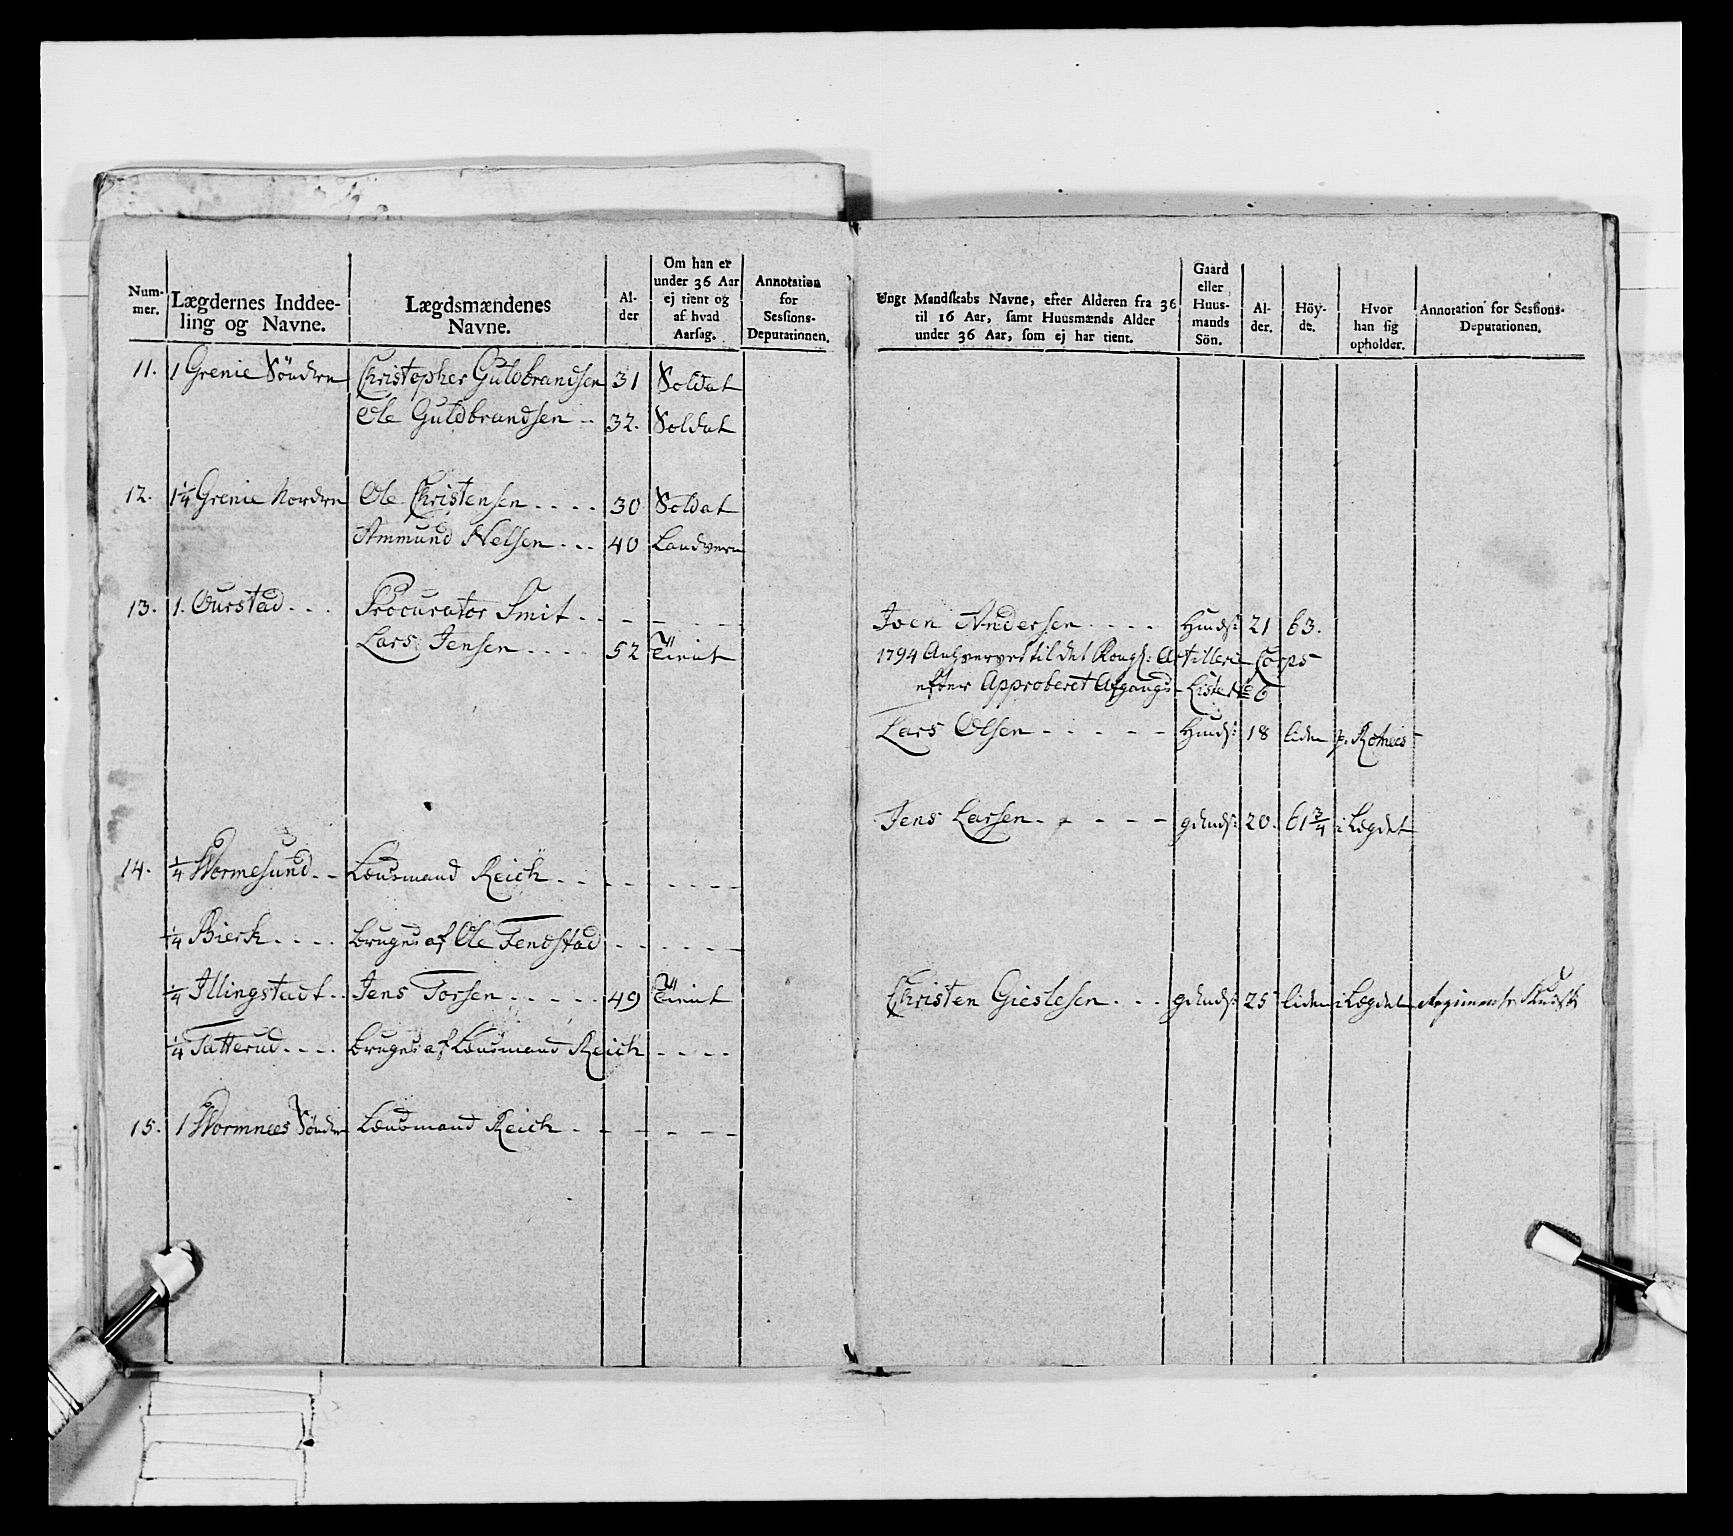 Num-
mer.
Lægdernes Inddee-
ling og Navne.
Lægdsmændenes
Navne.
Al-
der
Om han er
under 36 Aar
ej tient og
af hvad
Aarsag.
Annotation
for
Sessions-
Deputationen.
11. 1 Grenie Söndre Christopher Guldbrandsen 31 Soldat
Ole Guldbrandsen 32. Soldat
12. 1¼ Grenie Nordre Ole Christensen 30 Soldat
Ammund Nelsen 40 Landvern
13. 1. Ourstad Procurator Smit
Lars Jensen 52 Tient
14. ¼ Wormesund Lensmand Reich
¼ Bierk bruges af Ole Tendstad
¼ Illingstadt Jens Torsen 49 Tient
¼ Tatterud bruges af Lensmand Reich
15. 1 Wormnees Söndre Lensmand Reich
Ungt Mandskabs Navne, efter Alderen fra 36
til 16 Aar, samt Huusmænds Alder
under 36 Aar, som ej har tient.
Gaard
eller
Huus-
mands
Sön.
Al-
der.
Höy-
de.
Hvor
han sig
opholder.
Annotation for Sessions-
Deputationen.
Iven Andersen Huuds: 21 63.
1794 til det Kongl: Artillerie Corps
efter Approberet Afgangs Liste No 6
Lars Olsen Huuds: 18 liden p. Romes
Jens Larsen 20. 61¾ i Legdet
Christen Gieslesen 25 liden i Legdet Regiments